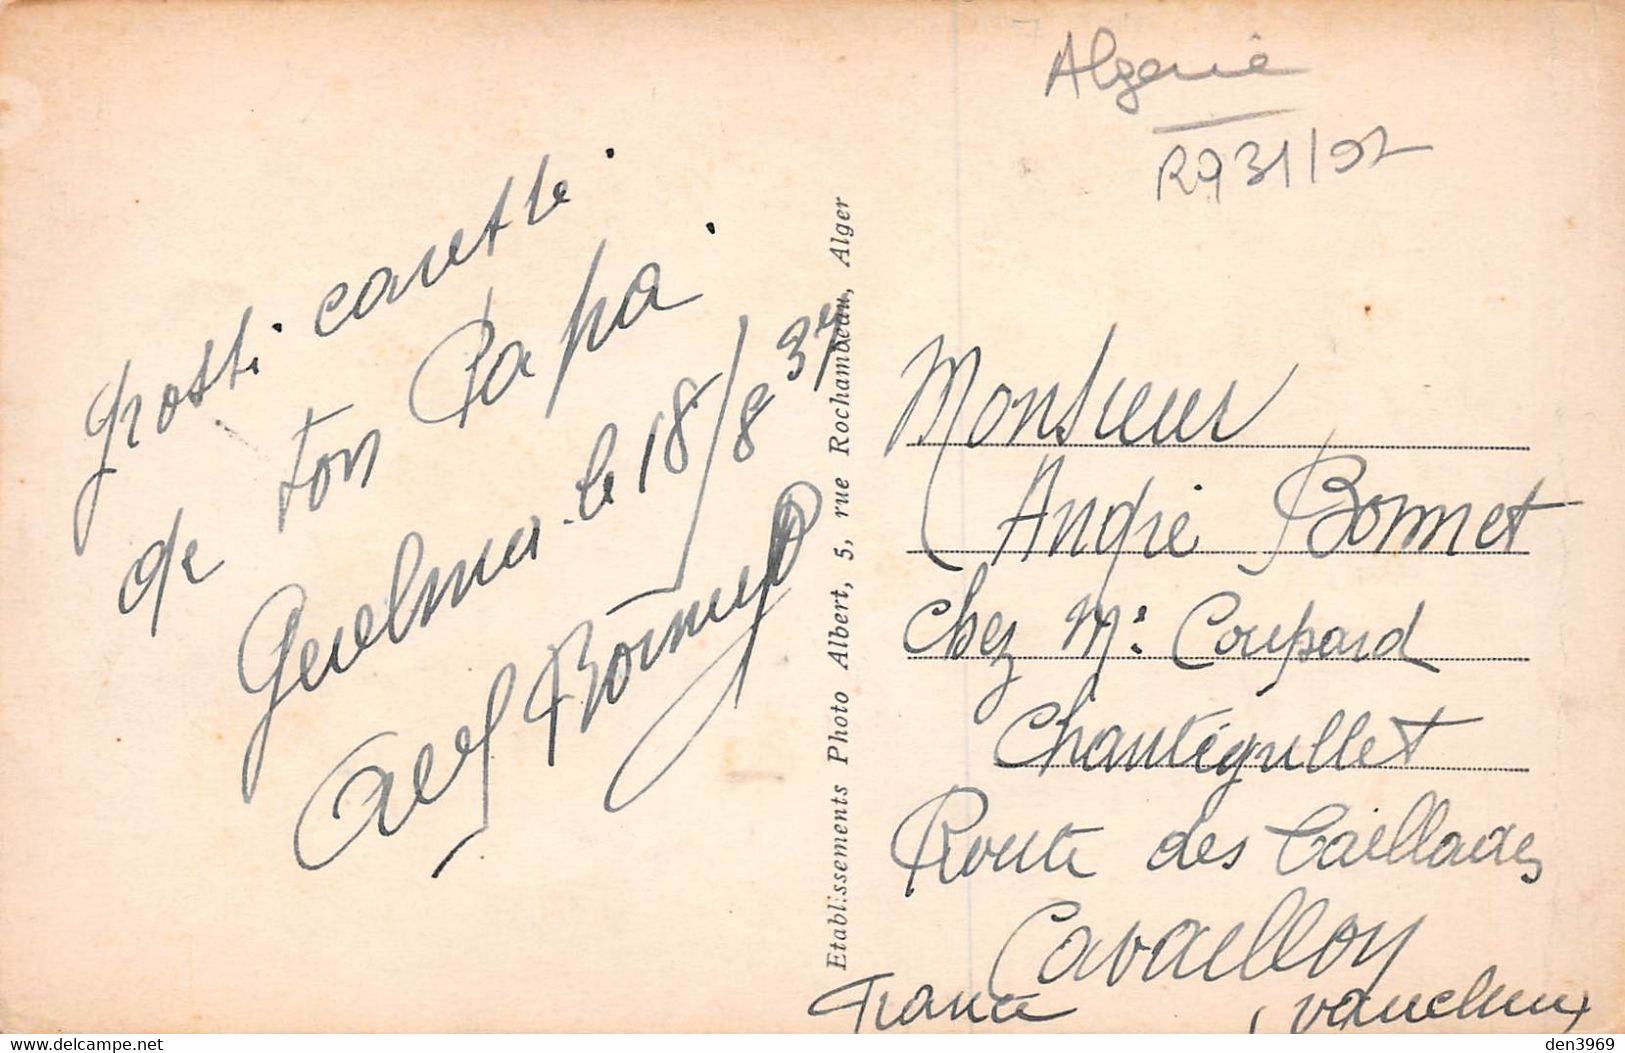 Algerie
R931/92
Grosse caresse
de ton Papa
Guelma le 18/8 37
Bonnet
Etablissements Photo Albert, 5, rue Rochambeau, Alger
Monsieur
André Bonnet
chez Mr Coupard
Route des Taillades
Cavaillon
France (Vaucluse)
delcampe.net
den3969